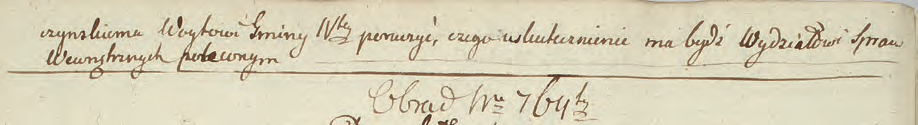 czyńskiemu Woytowi Gminy Wtey ponurzyć, czego uskutecznienie ma bydź Wydziałowi Spraw
Wewnętrznych poleconym
Obrad Nro 764ty